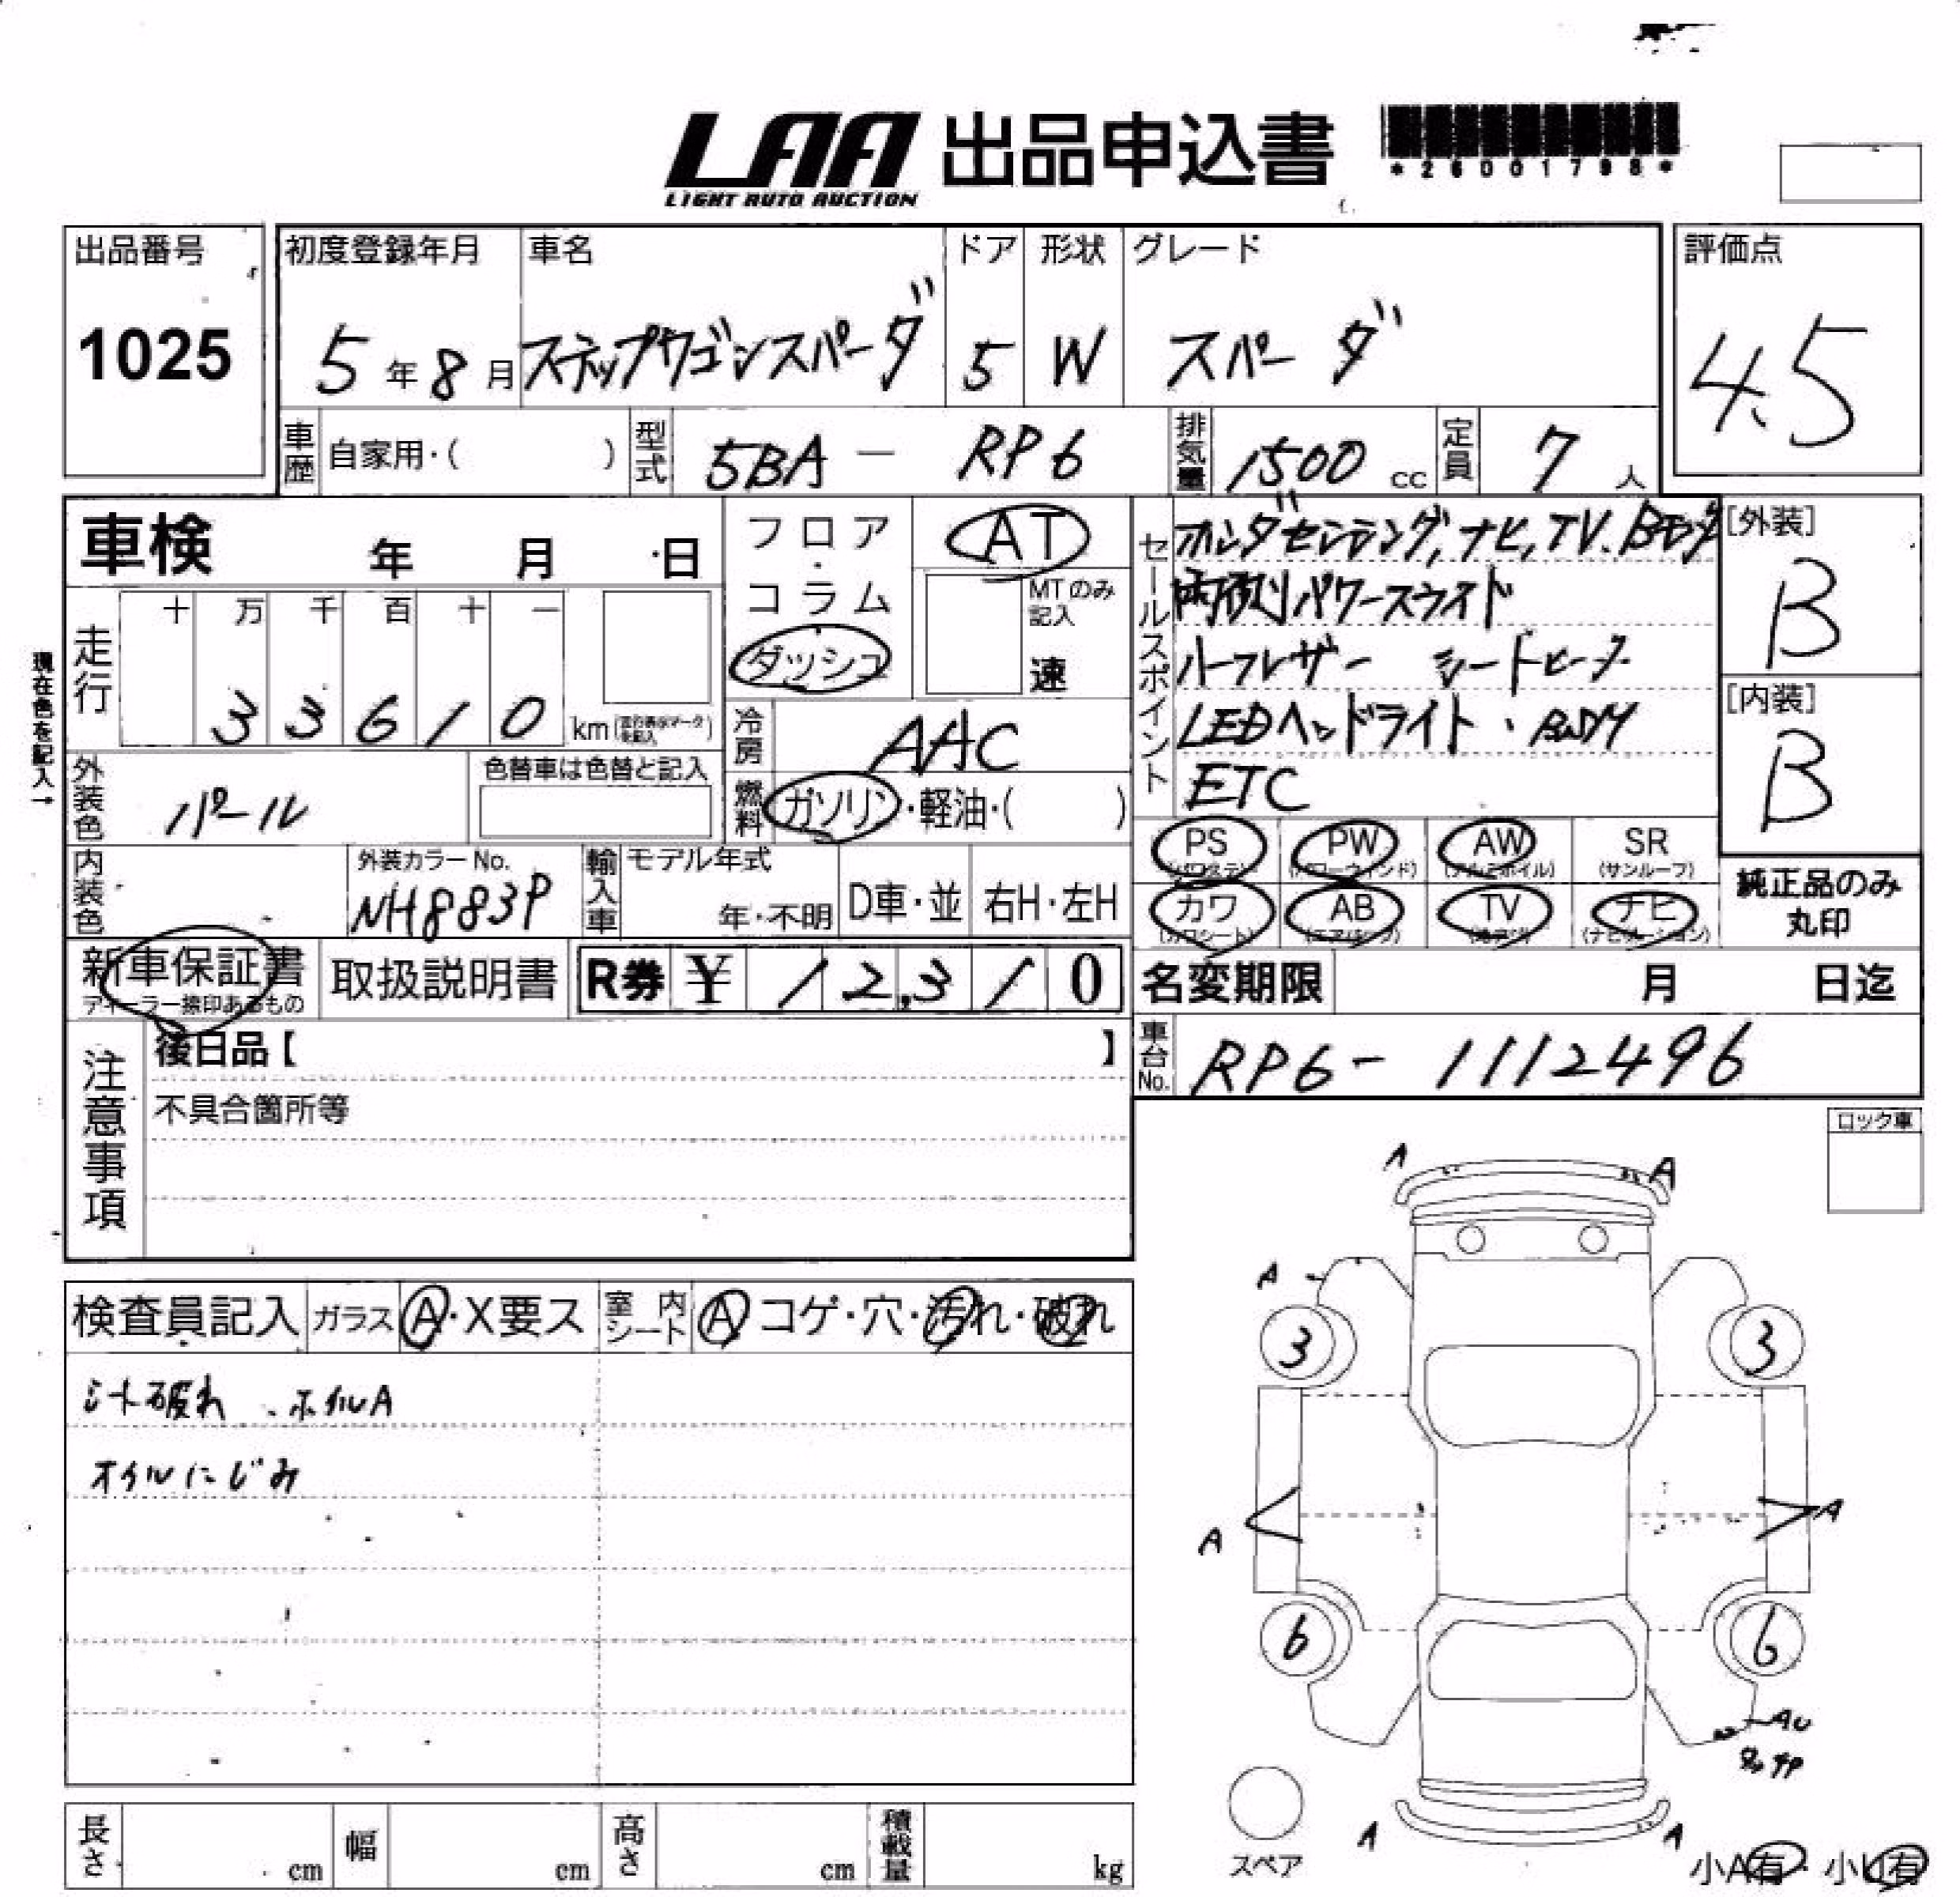 LAA 出品申込書
LIGHT AUTO AUCTION
*26001798*
出品番号 初度登録年月 車名 ドア 形状 グレード 評価点
1025 5年8月 ステップワゴンスパーダ 5 W スパーダ 4.5
車歴 自家用・( ) 型式 5BA - RP6 排気量 1500 cc 定員 7 人
車検 年 月 日
フロア・コラム
ダッシュ
AT
MTのみ記入
速
走行 十 万 千 百 十 一
33610 km
現在色を記入→
冷房 AAC
燃料 ガソリン・軽油・( )
外装色 パール
色替車は色替と記入
内装色
外装カラーNo.
NH883P
輸入車 モデル年式
年・不明 D車・並 右H・左H
セールスポイント
ホンダセンシング, ナビ, TV. Bモニタ
両側パワースライド
ハーフレザー シートヒーター
LEDヘッドライト・BSM
ETC
[外装]
B
[内装]
B
PS (パワステ) PW (パワーウィンド) AW (アルミホイル) SR (サンルーフ)
カワ (カワシート) AB (エアバック) TV ナビ (ナビゲーション)
純正品のみ
丸印
新車保証書
ディーラー捺印あるもの
取扱説明書 R券 ¥ 12,310
名変期限 月 日迄
車台No. RP6-1112496
注意事項
後日品【 】
不具合箇所等
ロック車
検査員記入 ガラス A・X要ス 室内シート A コゲ・穴・汚れ・破れ
シート破れ、ホイルA
オイルにじみ
A A
A
3 3
A A
6 6
AU
A A
スペア
小A有・小U有
長さ cm 幅 cm 高さ cm 積載量 kg